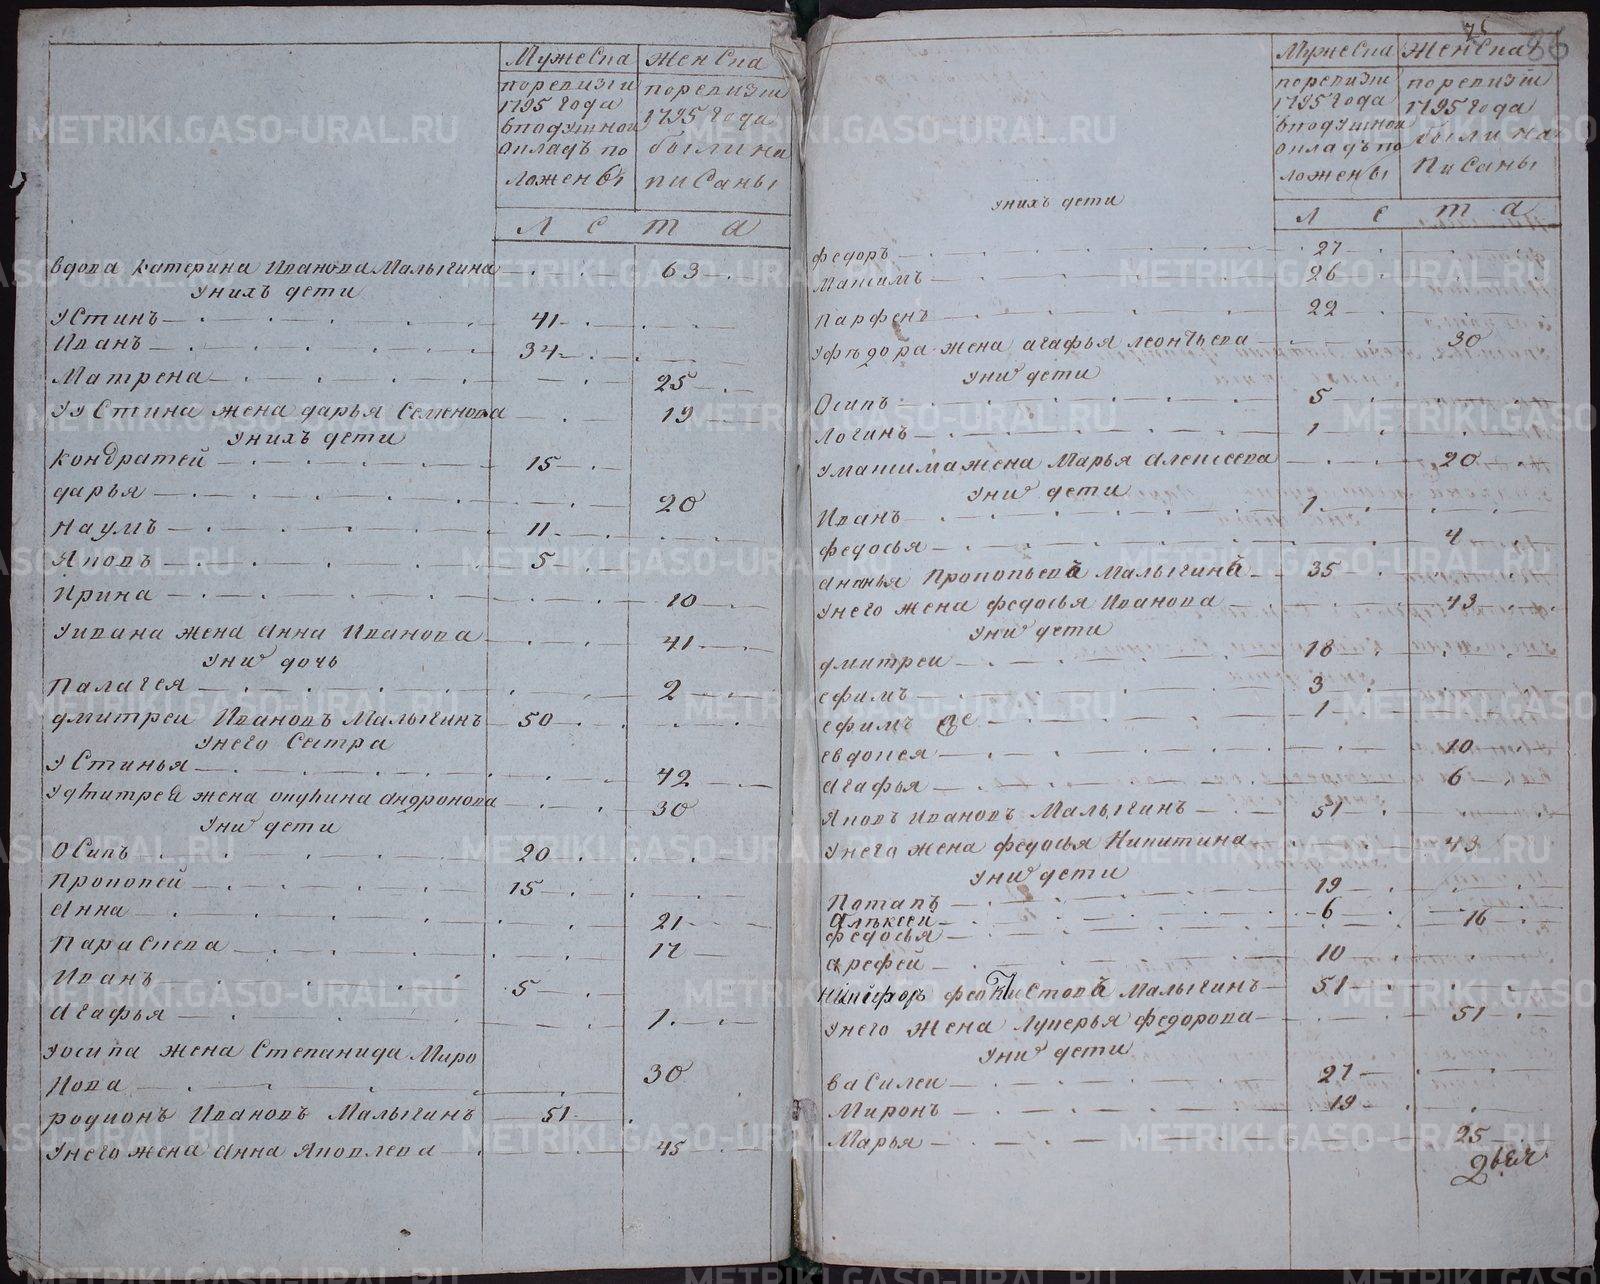 Мужеска Женска
поревизии 1795 года вподушной окладъ положены
поревизии 1795 года были написаны
Л е т а
вдова катерина Иванова Малыгина 63
Унихъ дети
Устинъ 41
Иванъ 34
Матрена 25
Уустина жена дарья Семенова 19
Унихъ дети
кондратей 15
дарья 20
наумъ 11
Яковъ 5
Ирина 10
Уивана жена Анна Иванова 41
Уни дочь
Палагея 2
дмитреи Ивановъ Малыгинъ 50
Унего Сестра
УСтинья 42
Удмитрея жена Андронова 30
Уни дети
Осипъ 20
Прокопей 15
Анна 21
Параскева 17
Иванъ 5
Агафья 1
Уосипа жена Степанида Миро
нова 30
родионъ Ивановъ Малыгинъ 51
Унего жена Анна Яковлева 45
86
Мужеска Женска
поревизии 1795 года вподушной окладъ положены
поревизии 1795 года были написаны
Л е т а
Унихъ дети
федоръ 27
Максимъ 26
Парфенъ 22
Уфедора жена агафья леонтьева 30
Уни дети
Осипъ 5
Логинъ 1
Умаксима жена Марья Алексеева 20
Уни дети
Иванъ 1
федосья 4
Ананья Прокопьевъ Малыгинъ 35
Унего жена федосья Иванова 43
Уни дети
дмитреи 18
ефимъ 3
ефимъ же 1
евдокея 10
Агафья 6
Яковъ Ивановъ Малыгинъ 51
Унего жена федосья Никитина 43
Уни дети
Потапъ 19
Алѣксеи 6
федосья 16
Арефей 10
Никифоръ Малыгинъ 51
Унего жена Лукерья федорова 51
Уни дети
василеи 27
Миронъ 19
Марья 25
METRIKI.GASO-URAL.RU